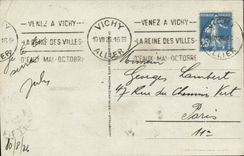 VENEZ A VICHY
LA REINE DES VILLES
D'EAUX MAI-OCTOBRE
VICHY
ALLIER
VENEZ A VICHY
LA REINE DES VILLES
D'EAUX MAI-OCTOBRE
ALLIER
25
Monsieur
Georges Lambert
47 Rue du Chemin Vert
Paris
11e